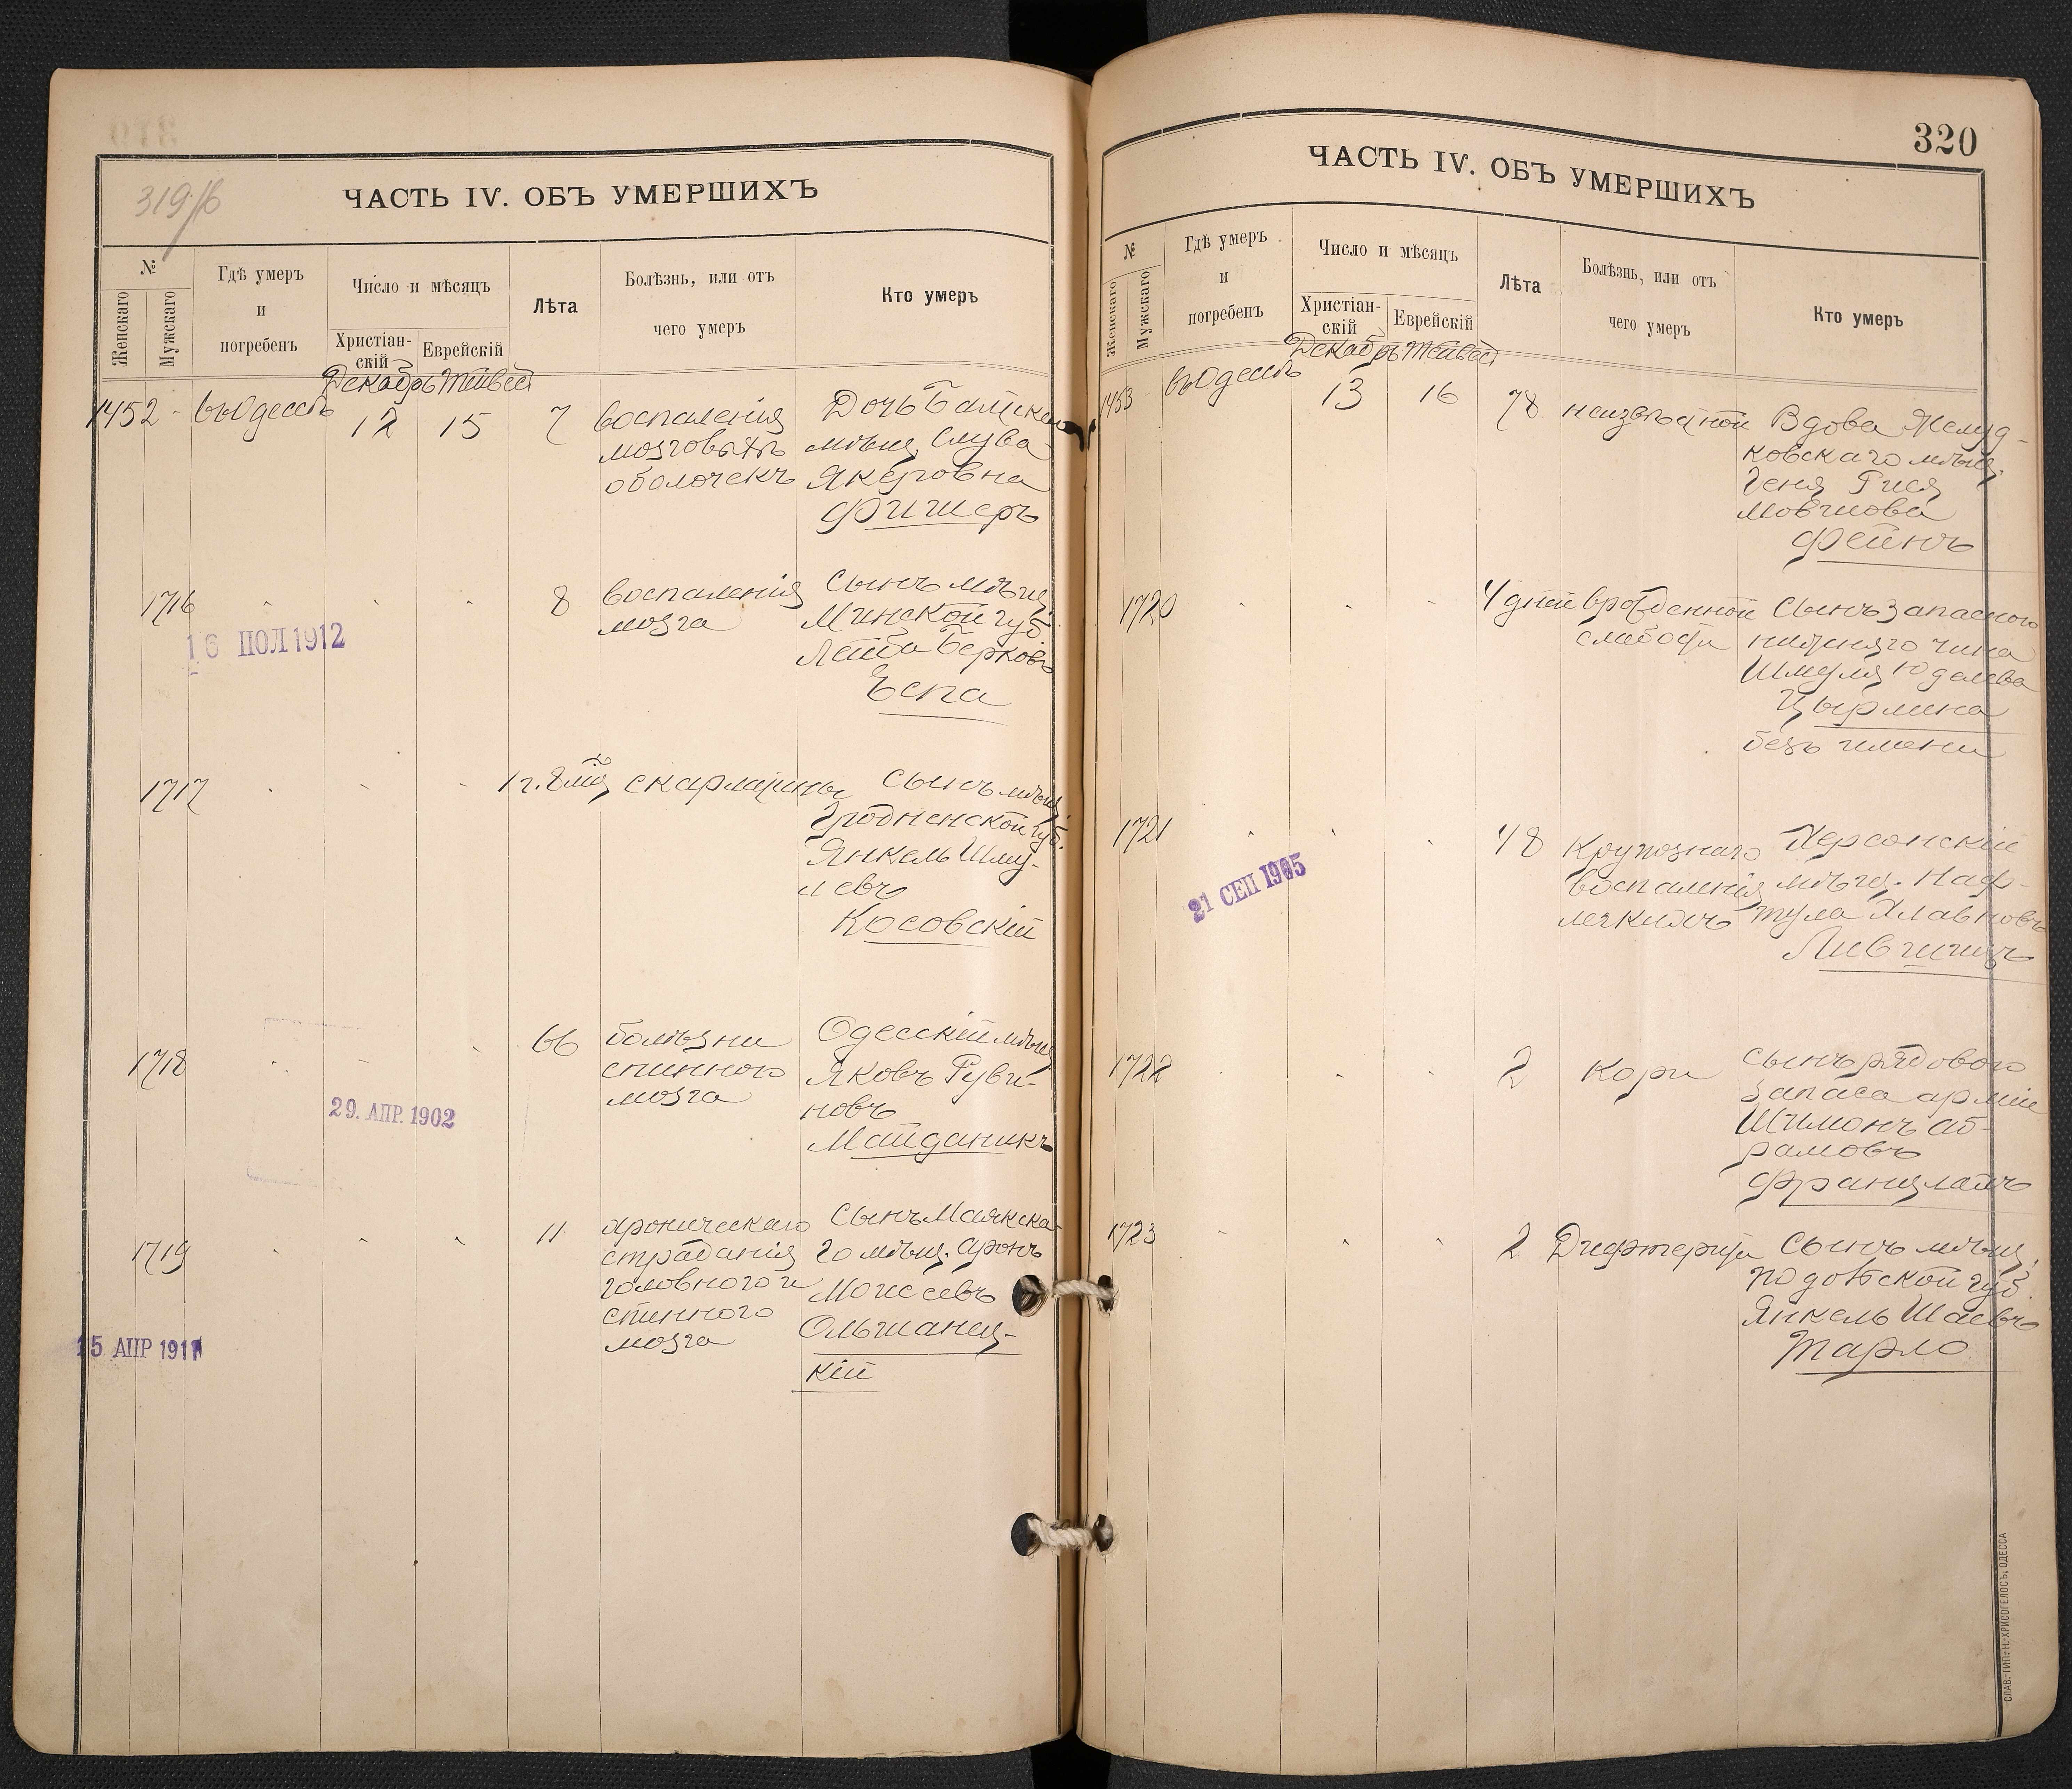 319 об
ЧАСТЬ IV. ОБЪ УМЕРШИХЪ
№
Женскаго
Мужскаго
Гдѣ умеръ
и
погребенъ
Число и мѣсяцъ
Христіан-
скій
Еврейскій
Лѣта
Болѣзнь, или отъ
чего умеръ
Кто умеръ
Декабрь Тейвес
1452 въ Одессѣ 12 15 7
воспаленія
мозговыхъ
оболочекъ
Дочь
мѣщ. Слува
Якеровна
Фишеръ
1716 8
воспаленія
мозга
Сынъ мѣщ.
Минской губ.
Лейба Берковъ
Еспа
16 ІЮЛ 1912
1717 1 г. 8 мѣс скарлатины
Сынъ мѣщ.
Гродненской губ.
Янкель Шму-
левъ
Косовскій
1718 66
болѣзни
спинного
мозга
Одесскій мѣщ
Яковъ Руви-
новъ
Майданикъ
29. АПР. 1902
1719 11
хроническаго
страданія
головного и
спинного
мозга
Сынъ Маякска-
го мѣщ. Аронъ
Моисеевъ
Ольшанец-
кій
15 АПР 1911
320
ЧАСТЬ IV. ОБЪ УМЕРШИХЪ
№
Женскаго
Мужскаго
Гдѣ умеръ
и
погребенъ
Число и мѣсяцъ
Христіан-
скій
Еврейскій
Лѣта
Болѣзнь, или отъ
чего умеръ
Кто умеръ
Декабрь Тейвес
1453 въ Одессѣ 13 16 78 неизвѣстной
Вдова Желуд-
ковскаго мѣщ.
Геня Гися
Мовшова
Фейнъ
1720 4 дней
врожденной
слабости
Сынъ запасного
нижняго чина
Шмуля Юделева
Цырлина
безъ имени
1721 48
Крупознаго
воспаленія
легкихъ
Херсонскій
мѣщ. Наф-
тула Хлавновъ
Лившицъ
21 СЕП 1905
1722 2 Кори
Сынъ рядового
запаса арміи
Шимонъ Аб-
рамовъ
Французлайхъ
1723 2 Дифтерита
Сынъ мѣщ.
Подольской губ.
Янкель Шаевъ
Тарло
СЛАВ. ТИП. Н. ХРИСОГЕЛОСЪ, ОДЕССА